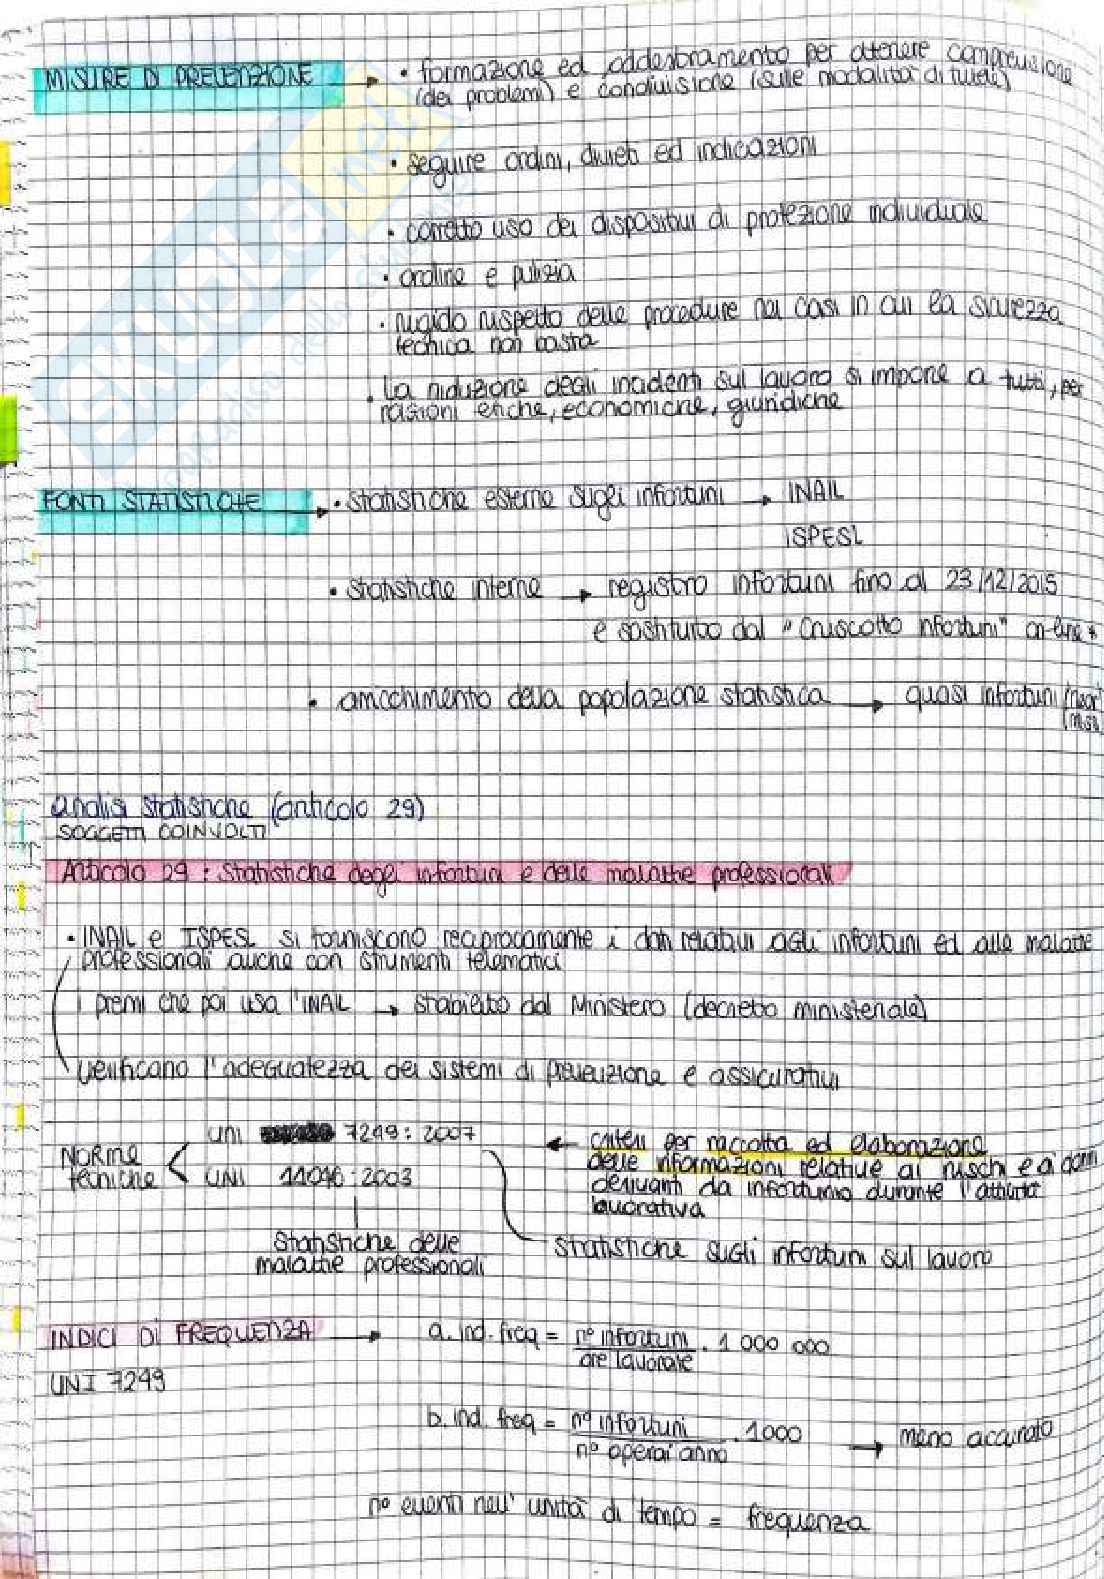 MISURE DI PREVENZIONE → • formazione ed addestramento per ottenere comprensione
(dei problemi) e condivisione (sulle modalità di tutela)
• seguire ordini, divieti ed indicazioni
• corretto uso dei dispositivi di protezione individuale
• ordine e pulizia
• rigido rispetto delle procedure nei casi in cui la sicurezza
tecnica non basta
• La riduzione degli incidenti sul lavoro si impone a tutti, per
ragioni etiche, economiche, giuridiche
FONTI STATISTICHE → • statistiche esterne sugli infortuni → INAIL
ISPESL
• statistiche interne → registro infortuni fino al 23/12/2015
e sostituito dal "Cruscotto infortuni" on-line *
• arricchimento della popolazione statistica → quasi infortuni (near
miss)
analisi statistiche (articolo 29)
SOGGETTI COINVOLTI
Articolo 29: Statistiche degli infortuni e delle malattie professionali
• INAIL e ISPESL si forniscono reciprocamente i dati relativi agli infortuni ed alle malattie
professionali anche con strumenti telematici
i premi che poi usa l'INAIL → stabilito dal Ministero (decreto ministeriale)
verificano l'adeguatezza dei sistemi di prevenzione e assicurativi
UNI 7249: 2007 ← criteri per raccolta ed elaborazione
NORME
tecniche < UNI 11046:2003
delle informazioni relative ai rischi e ai danni
derivanti da infortunio durante l'attività
lavorativa
Statistiche delle
malattie professionali
statistiche sugli infortuni sul lavoro
INDICI DI FREQUENZA → a. ind. freq = n° infortuni / ore lavorate · 1 000 000
UNI 7249
b. ind. freq = n° infortuni / n° operai anno · 1000 → meno accurato
n° eventi nell'unità di tempo = frequenza